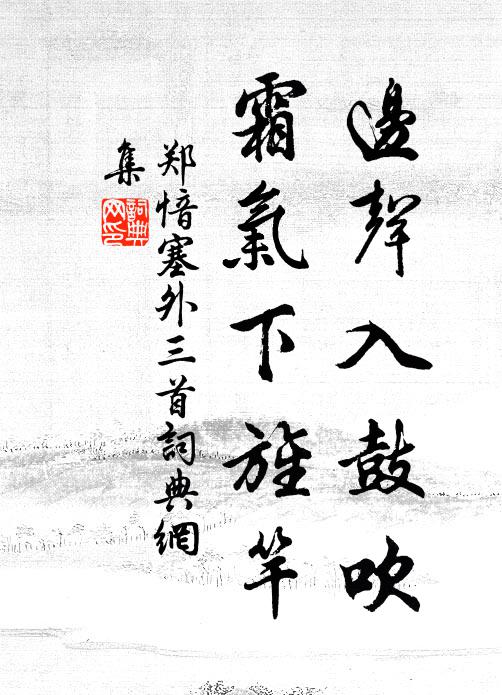 邊聲入鼓吹
霜氣下旌竿
郑愔塞外三首詞典網
集
詞典
网印